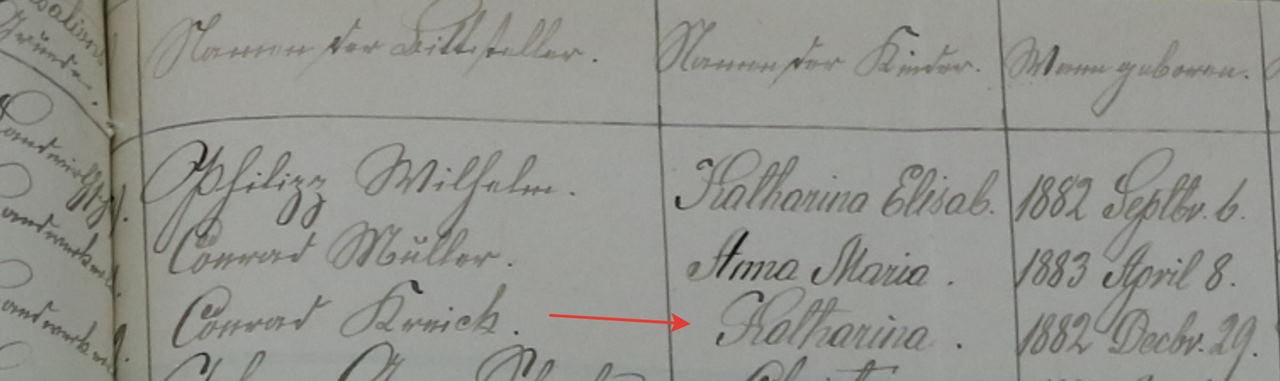 Namen der Bittsteller. Namen der Kinder. Wann geboren.
Philipp Wilhelm. Katharina Elisab. 1882 Septbr. 6.
Conrad Müller. Anna Maria. 1883 April 8.
Conrad Kreick. Katharina. 1882 Decbr. 29.